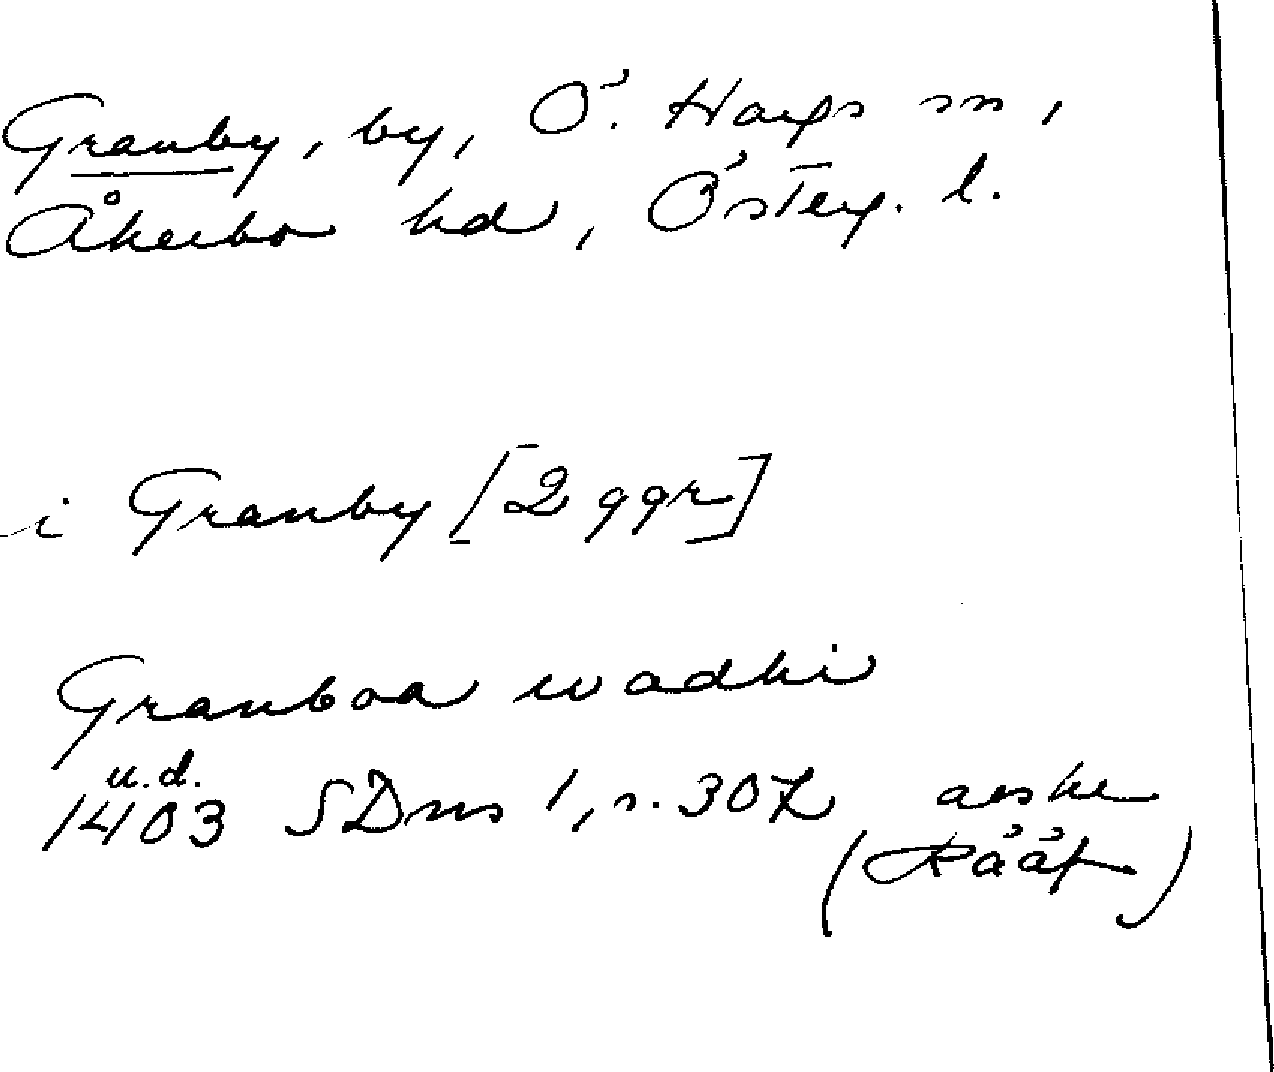 Granby, by, Ö. Hargs sn,
Åkerbo hd, Österg. l.
i Granby [2 ggr]
Granboa wadhi
u.d.
1403 SDns 1, s. 307 aeske
(Rääp)